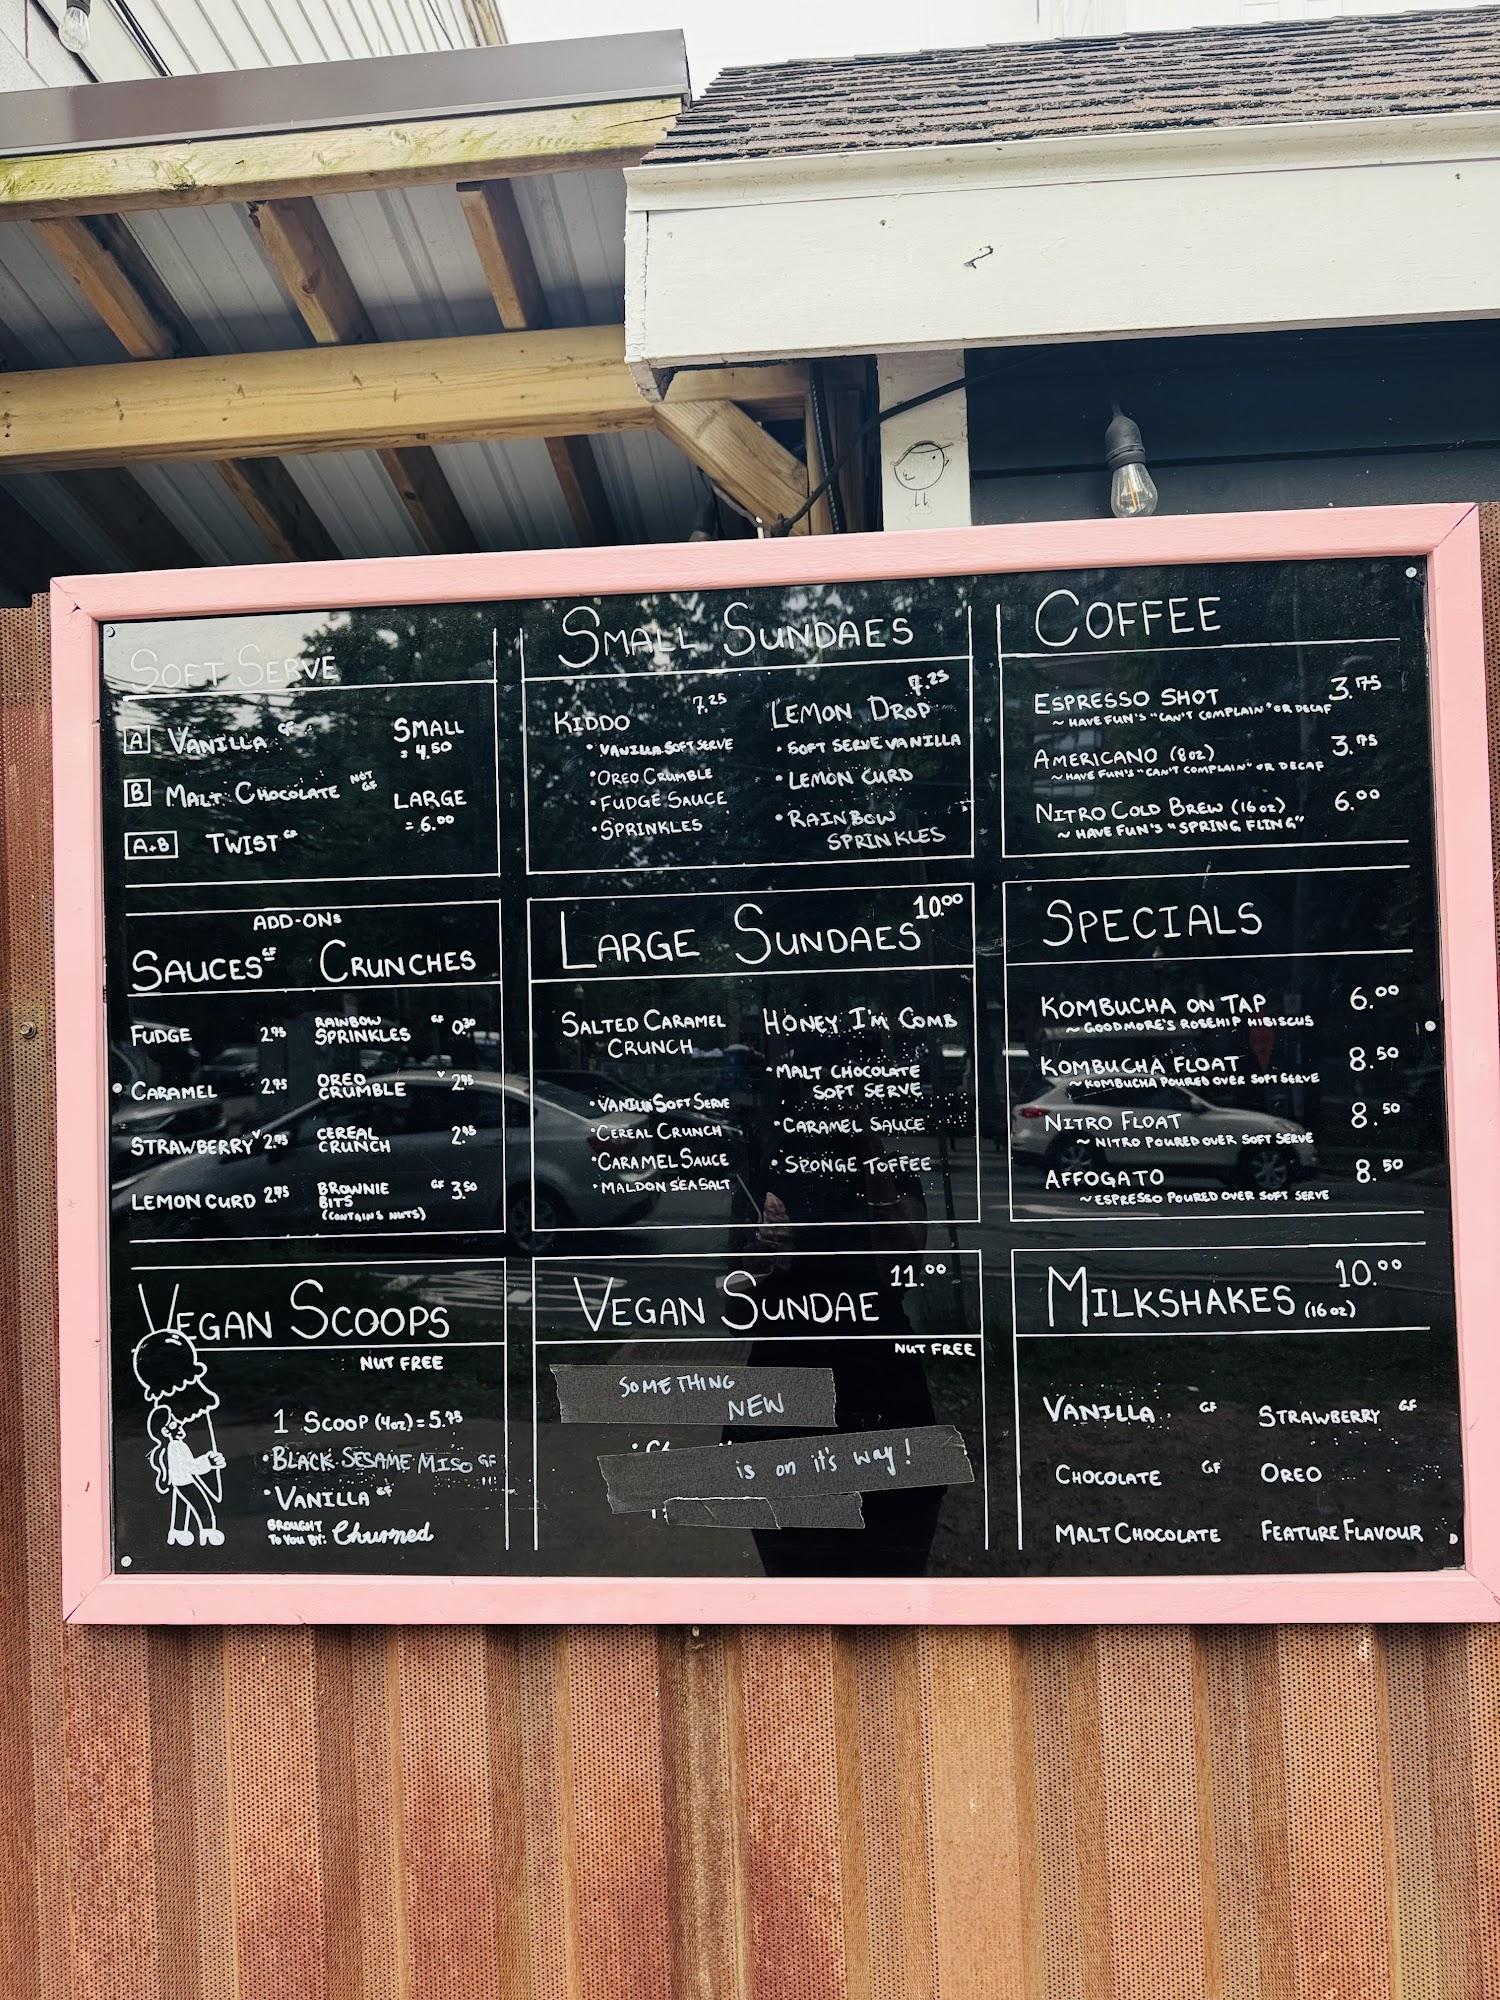 SOFT SERVE
A VANILLA GF
SMALL
= 4.50
B MALT CHOCOLATE NOT GF
LARGE
= 6.00
A+B TWIST GF
ADD-ONS
SAUCES GF CRUNCHES
FUDGE 2.75 RAINBOW SPRINKLES GF 0.30
CARAMEL 2.75 OREO CRUMBLE V 2.75
STRAWBERRY V 2.75 CEREAL CRUNCH
LEMON CURD 2.75 BROWNIE BITS GF 3.50
(CONTAINS NUTS)
VEGAN SCOOPS
NUT FREE
1 SCOOP (4oz) = 5.75
•BLACK SESAME MISO GF
•VANILLA GF
BROUGHT
TO YOU BY: Churned
SMALL SUNDAES
KIDDO 7.25
•VANILLA SOFT SERVE
•OREO CRUMBLE
•FUDGE SAUCE
•SPRINKLES
LEMON DROP 7.25
•SOFT SERVE VANILLA
•LEMON CURD
•RAINBOW
SPRINKLES
LARGE SUNDAES 10.00
SALTED CARAMEL
CRUNCH
•VANILLA SOFT SERVE
•CEREAL CRUNCH
•CARAMEL SAUCE
•MALDON SEA SALT
HONEY I'M COMB
•MALT CHOCOLATE
SOFT SERVE
•CARAMEL SAUCE
•SPONGE TOFFEE
VEGAN SUNDAE 11.00
NUT FREE
SOMETHING
NEW
is on it's way!
COFFEE
ESPRESSO SHOT 3.75
~ HAVE FUN'S "CAN'T COMPLAIN" OR DECAF
AMERICANO (8oz) 3.75
~ HAVE FUN'S "CAN'T COMPLAIN" OR DECAF
NITRO COLD BREW (16oz) 6.00
~ HAVE FUN'S "SPRING FLING"
SPECIALS
KOMBUCHA ON TAP 6.00
~ GOODMORE'S ROSEHIP HIBISCUS
KOMBUCHA FLOAT 8.50
~ KOMBUCHA POURED OVER SOFT SERVE
NITRO FLOAT 8.50
~ NITRO POURED OVER SOFT SERVE
AFFOGATO 8.50
~ ESPRESSO POURED OVER SOFT SERVE
MILKSHAKES (16oz) 10.00
VANILLA GF STRAWBERRY GF
CHOCOLATE GF OREO
MALT CHOCOLATE FEATURE FLAVOUR